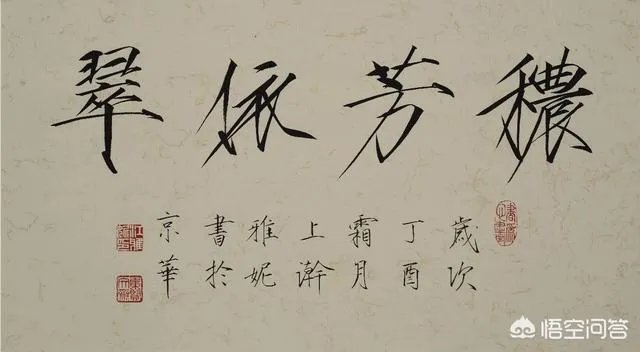 穠芳依翠
歲次
丁酉
霜月
上澣
雅妮
書於
京華
悟空问答